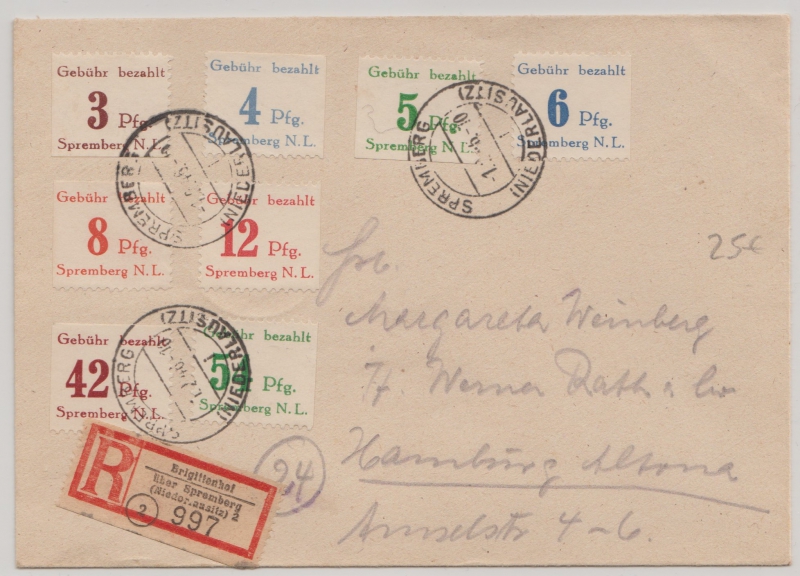 Gebühr bezahlt
3 Pfg.
Spremberg N.L.
Gebühr bezahlt
4 Pfg.
Spremberg N.L.
Gebühr bezahlt
5 Pfg.
Spremberg N.L.
Gebühr bezahlt
6 Pfg.
Spremberg N.L.
SPREMBERG
(NIEDERLAUSITZ)
SPREMBERG
(NIEDERLAUSITZ)
Gebühr bezahlt
8 Pfg.
Spremberg N.L.
Gebühr bezahlt
12 Pfg.
Spremberg N.L.
25€
Margareta Weinberg
Werner Rath
Hamburg Altona
4-6.
Gebühr bezahlt
42 Pfg.
Spremberg N.L.
Gebühr bezahlt
Pfg.
Spremberg N.L.
SPREMBERG
(NIEDERLAUSITZ)
1.2.46
R
Brigittenhof
über Spremberg
2
2 997
24